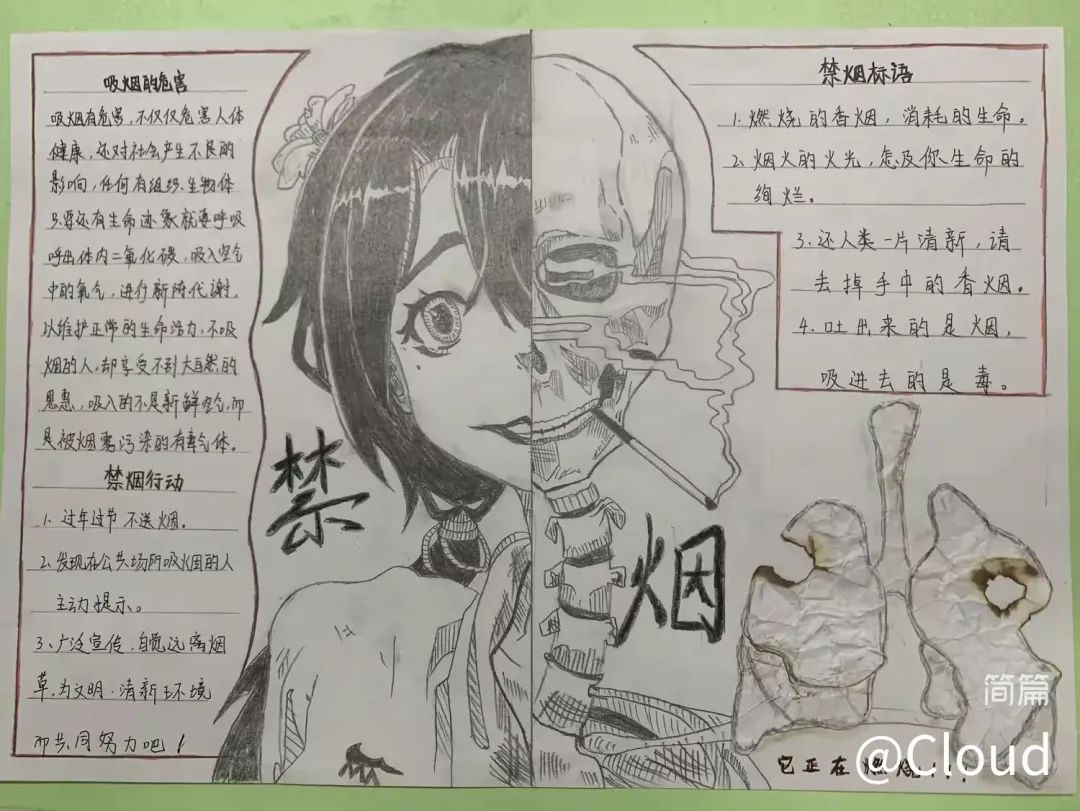 吸烟的危害
吸烟有危害，不仅仅危害人体
健康，还对社会产生不良的
影响，任何有组织、生物体
只要还有生命迹象就要呼吸
呼出体内二氧化碳，吸入空气
中的氧气，进行新陈代谢，
以维护正常的生命活力，不吸
烟的人，却享受不到大自然的
恩惠，吸入的不是新鲜空气，而
是被烟雾污染的有毒气体。
禁烟行动
1、过年过节不送烟。
2、发现在公共场所吸烟的人
主动提示。
3、广泛宣传，自觉远离烟
草，为文明、清新环境
而共同努力吧！
禁
烟
禁烟标语
1.燃烧的香烟，消耗的生命。
2、烟火的火光，怎及你生命的
绚烂。
3、还人类一片清新，请
去掉手中的香烟。
4、吐出来的是烟，
吸进去的是毒。
它正在燃烧！！！
简篇
@Cloud